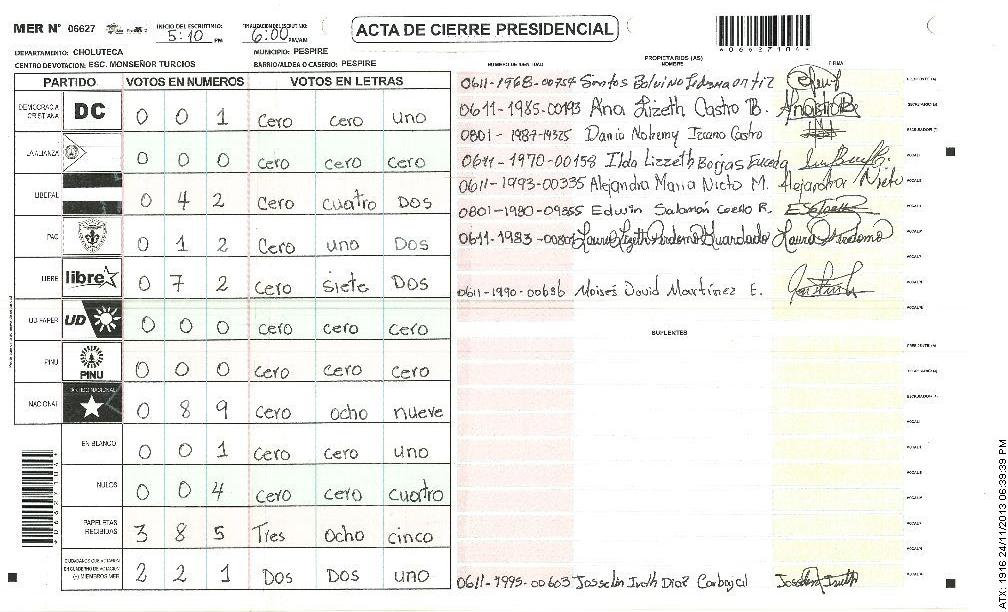 MER Nº 06627 INICIO DEL ESCRUTINIO: 5:10 PM FINALIZACION ESCRUTINIO: 6:00 PM/AM ACTA DE CIERRE PRESIDENCIAL 06627104
DEPARTAMENTO: CHOLUTECA MUNICIPIO: PESPIRE
CENTRO DE VOTACION: ESC. MONSEÑOR TURCIOS BARRIO/ALDEA O CASERIO: PESPIRE
PARTIDO VOTOS EN NUMEROS VOTOS EN LETRAS
DEMOCRACIA CRISTIANA DC 0 0 1 Cero cero uno
LA ALIANZA 0 0 0 cero cero cero
LIBERAL 0 4 2 Cero cuatro Dos
PAC 0 1 2 Cero uno Dos
LIBRE libre 0 7 2 Cero siete Dos
UD FAPER UD 0 0 0 cero cero cero
PINU PINU 0 0 0 cero cero cero
NACIONAL PARTIDO NACIONAL 0 8 9 Cero ocho nueve
EN BLANCO 0 0 1 Cero cero uno
NULOS 0 0 4 Cero cero cuatro
PAPELETAS RECIBIDAS 3 8 5 Tres ocho cinco
CIUDADANOS QUE VOTARON EN CUADERNO DE VOTACION (+) MIEMBROS MER 2 2 1 Dos Dos uno
PROPIETARIOS (AS)
NUMERO DE IDENTIDAD NOMBRE FIRMA
0611-1968-00754 Santos
0611-1985-00193 Ana Lizeth Castro B.
0801-1987-19325 Dania Nohemy Castro
0611-1970-00158 Ilda Lizzeth Borjas Euceda
0611-1993-00335 Alejandra Maria Nieto M. Alejandra Nieto
0801-1980-09355 Edwin Salomón Coello R.
0611-1983- Laura Lizeth Perdomo Guardado Laura Perdomo
0611-1990-00686 Moises David Martínez E.
SUPLENTES
0611-1995-00603 Josselin Iveth Diaz Carbajal
ATX: 1316 24/11/2013 06:39:39 PM